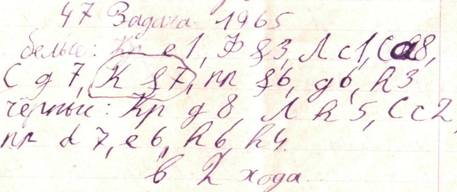 47 Задача 1965
белые: Кр e1, Ф g3, Л c1, С a8,
С g7, К g7, пп g6, g6, h3
чёрные: Кр g8, Л h5, С c2,
пп d7, e6, h6, h4.
в 2 хода.